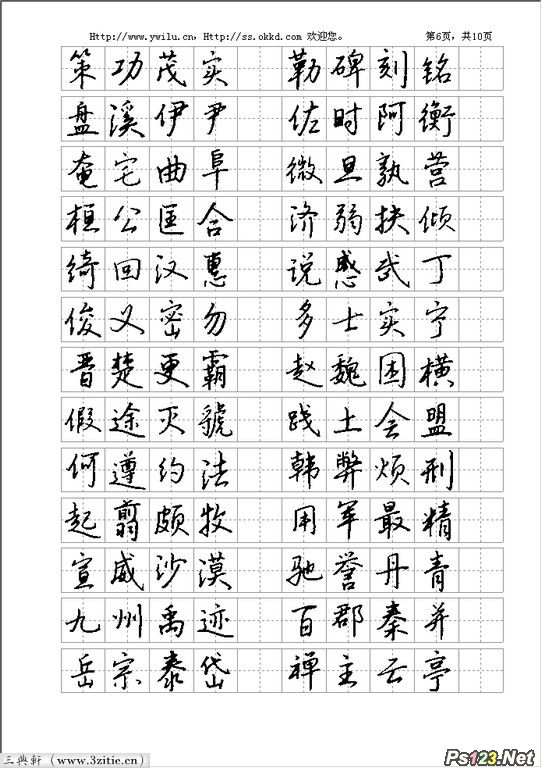 Http://www.ywilu.cn, Http://ss.okkd.com 欢迎您。 第6页, 共10页
策功茂实 勒碑刻铭
盘溪伊尹 佐时阿衡
奄宅曲阜 微旦孰营
桓公匡合 济弱扶倾
绮回汉惠 说感武丁
俊乂密勿 多士实宁
晋楚更霸 赵魏困横
假途灭虢 践土会盟
何遵约法 韩弊烦刑
起翦颇牧 用军最精
宣威沙漠 驰誉丹青
九州禹迹 百郡秦并
岳宗泰岱 禅主云亭
三典軒（www.3zitie.cn）
Ps123.Net